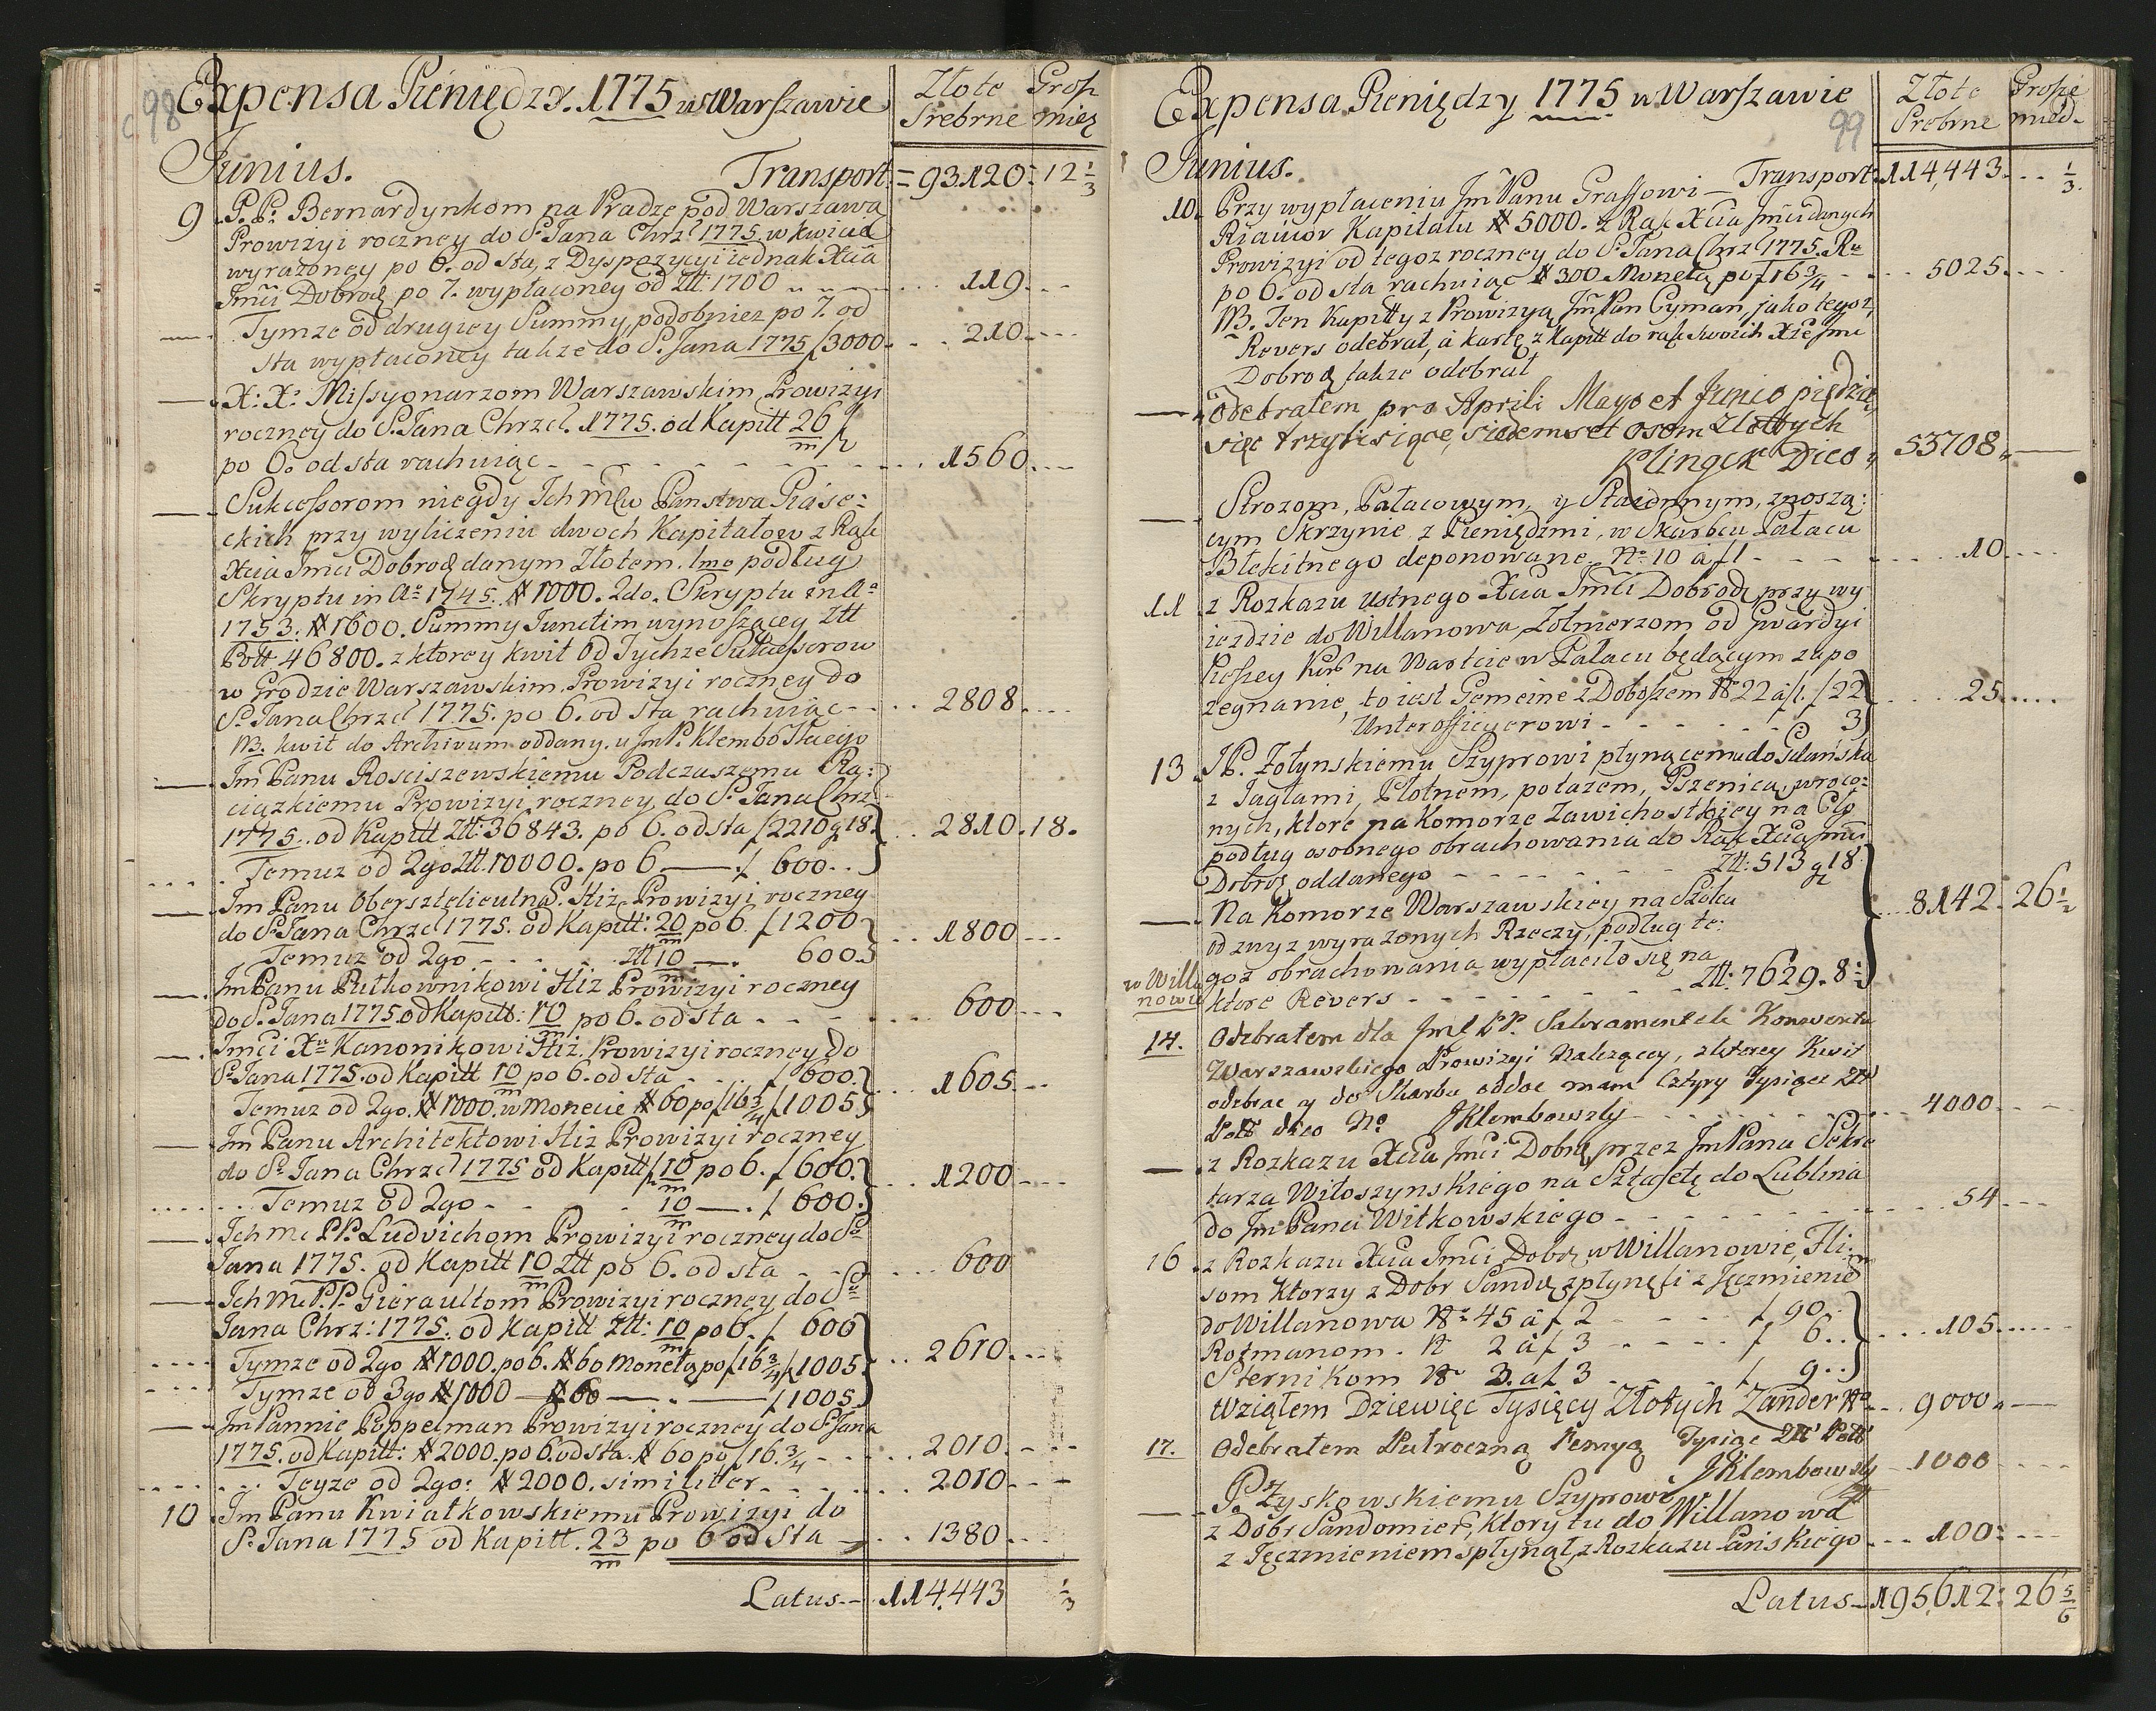 c. 98
Expensa Pieniędzy. 1775 w Warszawie
Złote Grosz
Srebrne mied
Junius. Transport. = 93120. 12 1/3
9 P. P. Bernardynkom na Pradze pod Warszawą
Prowizyi roczney do S. Jana Chrzcl 1775. w kwicie
wyrażoney po 6. od sta, z Dyspozycyi iednak Xcia
Jmci Dobrodz po 7. wypłaconey od Ztt: 1700 119.
Tymze od drugiey Summy podobniez po 7. od
sta wypłaconey takze do S. Jana 1775 f 3000. 210.
X: X: Missyonarzom Warszawskim Prowizyi
roczney do S. Jana Chrzcl. 1775. od Kapitt 26/m f
po 6. od sta rachuiąc 1560.
Sukcessorom niegdy Ich Mciw Panstwa Piase:
ckich przy wyliczeniu dwoch Kapitałow z Rąk
Xcia Jmci Dobrodz danym Złotem. 1mo podług
Skryptu in Ao 1745. # 1000. 2do. Skryptu in Ao
1753. # 1600. Summy Junctim wynoszącey Ztt
Poll 46800. z ktorey kwit od Tychze Sukcessorow
w Grodzie Warszawskim. Prowizyi roczney do
S. Jana Chrzcl 1775. po 6. od sta rachuiąc 2808.
NB. kwit do Archivum oddany. u JmP. Klembowskiego
Jm Panu Rosciszewskiemu Podczaszemu Ra:
ciązkiemu Prowizyi roczney do S. Jana Chrz.
1775. od Kapitt Ztt: 36843. po 6. od sta f 2210 g 18. 2810. 18.
Temuz od 2go Ztt. 10000. po 6 f 600.
Jm Panu Obersztelieutna. Hiz Prowizyi roczney
do S. Jana Chrzcl 1775. od Kapitt: 20/m po 6. f 1200 1800
Temuz od 2go Ztt 10/m 600.
Jm Panu Pułkownikowi Hiz Prowizyi roczney
do S. Jana 1775. od Kapitt: 10/m po 6. od sta 600
Jmci Xu Kanonikowi Hiz. Prowizyi roczney do
S. Jana 1775. od Kapitt 10/m po 6. od sta f 600. 1605.
Temuz od 2go. # 1000. w Monecie # 60 po f 16 3/4 f 1005
Jm Panu Architektowi Hiz Prowizyi roczney
do S. Jana Chrzcl 1775 od Kapitt f 10/m po 6. f 600. 1200
Temuz od 2go 10/m f 600.
Ich mc PP. Ludvichom Prowizyi roczney do S.
Jana 1775. od Kapitt 10/m Ztt po 6. od sta 600
Ich Mc PP. Gieraultom Prowizyi roczney do S.
Jana Chrz: 1775. od Kapitt Ztt: 10/m po 6. f 600 2610.
Tymze od 2go # 1000. po 6. # 60 Monetą po f 16 3/4 f 1005
Tymze od 3go # 1000 # 60 f 1005
Jm Pannie Poppelman Prowizyi roczney do S. Jana
1775. od Kapitt: # 2000. po 6. od sta. # 60 po f 16. 3/4 2010.
Teyze od 2go: # 2000. similiter 2010.
10 Jm Panu Kwiatkowskiemu Prowizyi do
S. Jana 1775 od Kapitt. 23/m po 6 od sta 1380
Latus 114.443 1/3
99
Expensa Pieniędzy 1775 w Warszawie
Złote Grosze
Srebrne mied.
Junius. Transport 114,443. 1/3.
10. Przy wypłaceniu Jm Panu Graffowi
Kapitału # 5000. z Rąk Xcia Jmci danych
Prowizyi od tegoz roczney do S. Jana Chrzcl 1775. Ru
po 6. od sta rachuiąc # 300 Monetą po f 16 3/4 5025.
NB. Ten Kapitty z Prowizyą Jm Pan Cyman, jako tegoz
Revers odebrał, à kartę z Kapitt do rąk swoich Xze Jmc
Dobrodz takze odebrał
Odebrałem pro Aprili Mayo et Junio piędzie
sięc trzy tisiące, siedemset osom Złottych 53708.
Klinger Dico
Strozom, Pałacowym, y Staiennym, znoszą:
cym Skrzynie z Pieniędzmi, w Skarbcu Pałacu
Błekitnego deponowane. No 10 à f 1 10.
11 z Rozkazu ustnego Xcia Jmci Dobrodz przy wy
ieździe do Willanowa Żołnierzom od Gwardyi
Pieszey Kor na Warcie w Pałacu będącym za po
żegnanie, to iest Gemeine z Doboszem No 22 à f 1. f 22 25.
Unterofficyerowi 3
13 JP. Żołynskiemu Szyprowi płynącemu do Gdańska
z Jagłami, Płotnem, potażem, Pszenicą, wroco:
nych, ktore na Komorze Zawichostskiey na Cło
podług osobnego obrachowania do Rąk Xcia Jmci
Dobrodz oddanego Ztt: 513 g 18
Na Komorze Warszawskiey na Szolcu 8142. 26 1/2
od zwyz wyrażonych Rzeczy, podług te:
goz obrachowania wypłaciło się na
w Willa
nowie ktore Revers Ztt. 7629. 8 1/2
14. Odebrałem dla Jmc PP. Sakramentek Konwentu
Warszawskiego Prowizyi Należącey, z ktorey Kwit
odebrac y do Skarbu oddac mam Cztyry Tysiące Ztt
Poll dico No JKlembowsky 4000
z Rozkazu Xcia Jmci Dobrodz przez Jm Pana Sekre
tarza Witoszynskiego na Sztafetę do Lublina
do Jm Pana Witkowskiego 54
16 z Rozkazu Xcia Jmci Dobrodz w Willanowie, Fli:
som ktorzy z Dobr Sando. spłynęli z Jęczmienie
do Willanowa No 45 à f 2 f 90.
Rotmanom. No 2 à f 3 f 6. 105.
Sternikom No 3. à f 3 f 9.
Wziąłem Dziewięć Tysięcy Złotych Zander 9000
17. Odebrałem Pułroczną Pensyą Tysiąc Ztt Poll
JKlembowsky 1000
P. Zyskowskiemu Szyprowi
z Dobr Sandomier., ktory tu do Willanowa
z Jęczmieniem spłynął, z Rozkazu Pańskiego 100.
Latus 195,612. 26 5/6